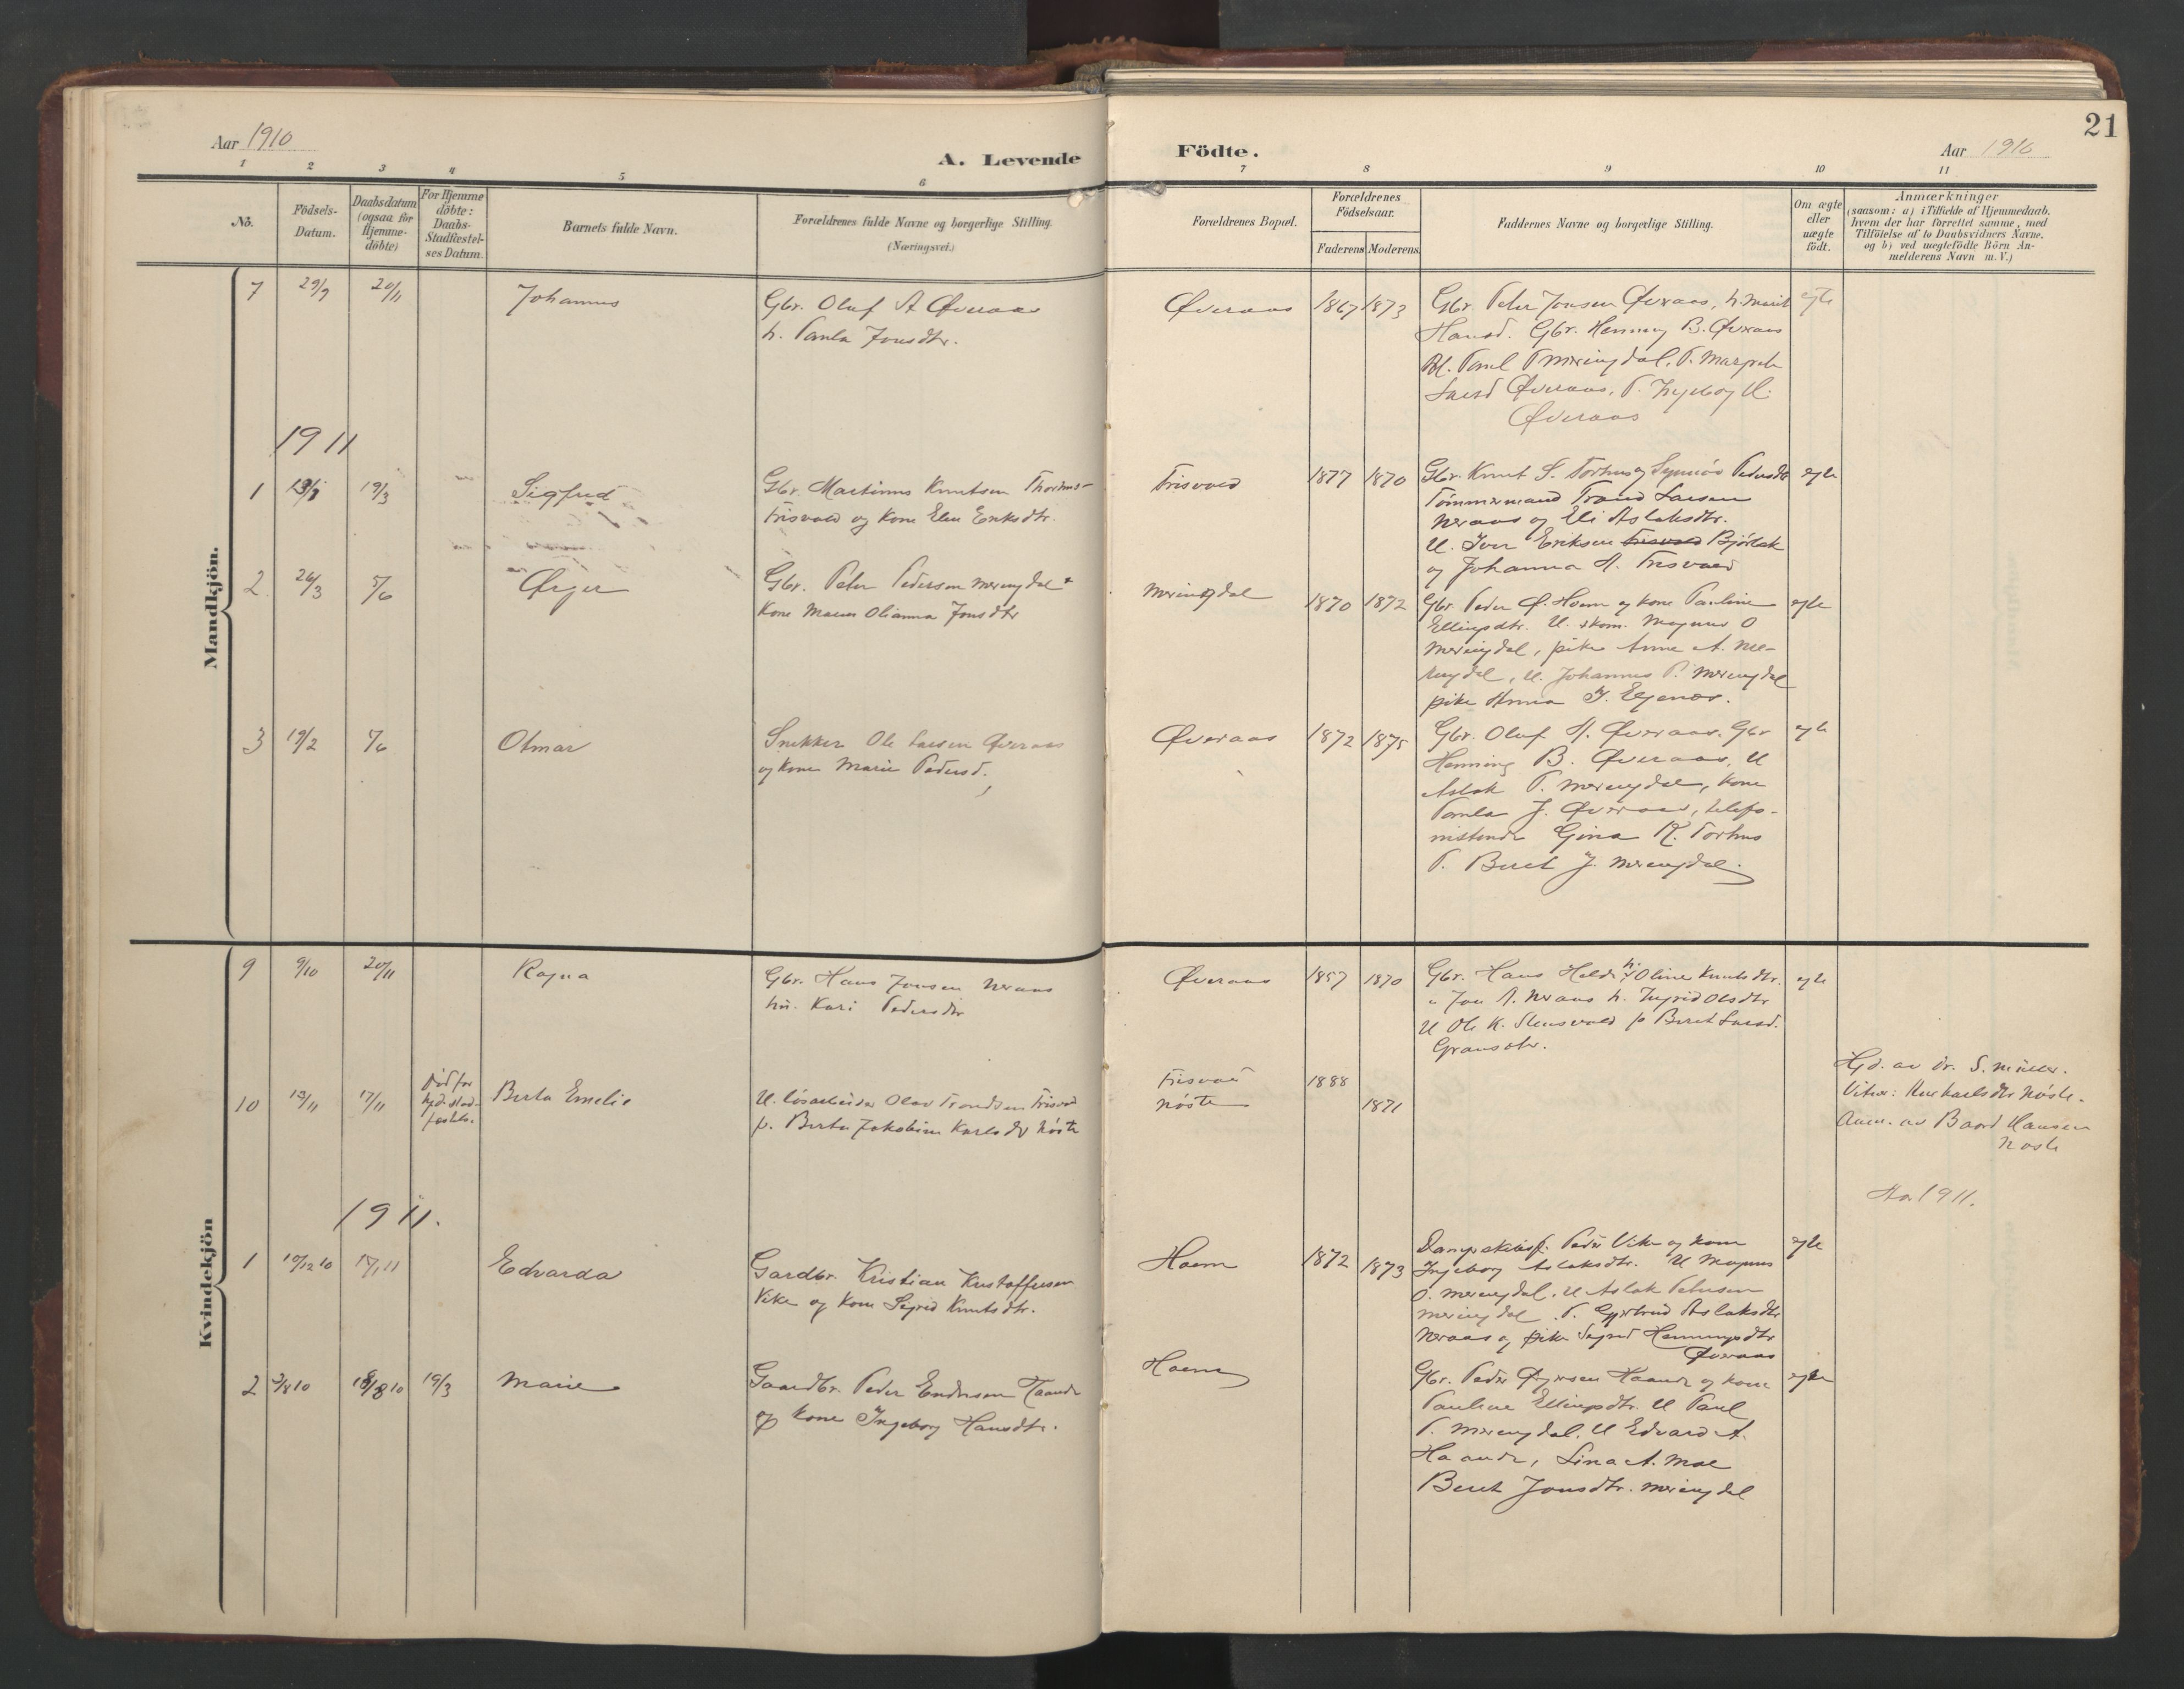 21
Aar 1910
A. Levende
Födte.
Aar 1910
1 2 3 4 5 6 7 8 9 10 11
No.
Födsels-
Datum.
Daabsdatum
(ogsaa för
Hjemme-
döbte)
For Hjemme
döbte:
Daabs-
Stadfæstel-
ses Datum.
Barnets fulde Navn.
Forældrenes fulde Navne og borgerlige Stilling.
(Næringsvei.)
Forældrenes Bopæl.
Forældrenes
Födselsaar.
Faderens Moderens
Faddernes Navne og borgerlige Stilling.
Om ægte
eller
uægte
födt.
Anmærkninger
(saasom: a) i Tilfælde af Hjemmedaab.
hvem der har forrettet samme, med
Tilföielse af to Daabsvidners Navne.
og b) ved uægtefödte Börn An-
melderens Navn m.V.)
Mandkjön.
7 29/9 20/11 Johannes
Gbr. Oluf A Øveraas
h. Paula Jonsdtr.
Øveraas 1867 1873
Gbr. Peter Jonsen Øveraas, h. Marit
Hansd. Gbr. Henning B. Øveraas
Paul P Meringdal, P.
Larsd Øveraas, P. Ingeborg
Øveraas
egte
1911
1 19/3 Sigfred
Gbr. Martinus Knutsen Thorhus-
Frisvold og Kone Elen Eriksdtr.
Frisvold 1877 1870
Gbr. Knut S. Torhus og Synnöv Pedersdtr
Tömmermand Trond Larsen
Neraas og Eli Aslaksdtr.
U. Iver Eriksen Frisvold Bjørbak
og Johanna A. Frisvold
egte
2 26/3 5/6 Ørger
Gbr. Peter Pedersen Meringdal
Kone Maren Olianna Jonsdtr
Meringdal 1870 1872
Gbr. Peder Ø. Hoem og kone Pauline
Ellingsdtr. U. skom. Magnus O
Meringdal, pike Anne A. Me-
ringdal, U. Johannes P. Meringdal
pike Anna J. Elgenes.
egte
3 19/2 5/6 Otmar
Snekker Ole Larsen Øveraas
og Kone Marie Pedersd.
Øveraas 1872 1875
Gbr. Oluf A. Øveraas. Gbr
Henning B. Øveraas, U
Aslak P. Meringdal, kone
Paula J. Øveraas, telefo-
nistinde Gina K. Torhus
P. Beret J. Meringdal.
egte
Kvindekjön
9 9/10 20/11 Ragna
Gbr. Hans Jonsen Neraas
h. Kari Pedersdtr
Øveraas 1857 1870
Gbr. Hans Heldr h. Oline Knutsdtr.
" Jon A. Neraas h. Ingrid Olsdtr
U Ole K. Stensvold p Beret Larsd.
egte
10 13/11 17/11
Død før
hjd. stad-
fæstels.
Berta Emelie
U. løsarbeider Olav Trondsen Frisvol
p. Berta Jakobine Karlsdtr Nöste
Frisvol
Nöste
1888
1871
Hjd. av dr. S. Müller.
Vitner: Karlsdtr Nöste.
Anm. av Baard Hansen
Nöste
1911.
Aar 1911.
1 10/12 10 15/1 11 Edvarda
Gardbr. Kristian Kristoffersen
Vike og Kone Sigrid Knutsdtr.
Hoem 1872 1873
Dampskibsf. Peder Vike og kone
Ingeborg Aslaksdtr. U Magnus
O. Meringdal, U Aslak Petersen
Meringdal. P. Gjertrud Aslaksdtr
Neraas og pike Sigrid Henningsdtr
Øveraas
egte
2 2/8 10 18/8 10 19/3 Marie
Gaardbr. Peder Endresen Haande
og Kone Ingeborg Hansdtr.
Hoem
Gbr. Peder Ørjersen Haande og kone
Pauline Ellingsdtr. U Paul
P. Meringdal. U Edvard A.
Haande, Lina A. Moe
Beret Jonsdtr. Meringdal
egte